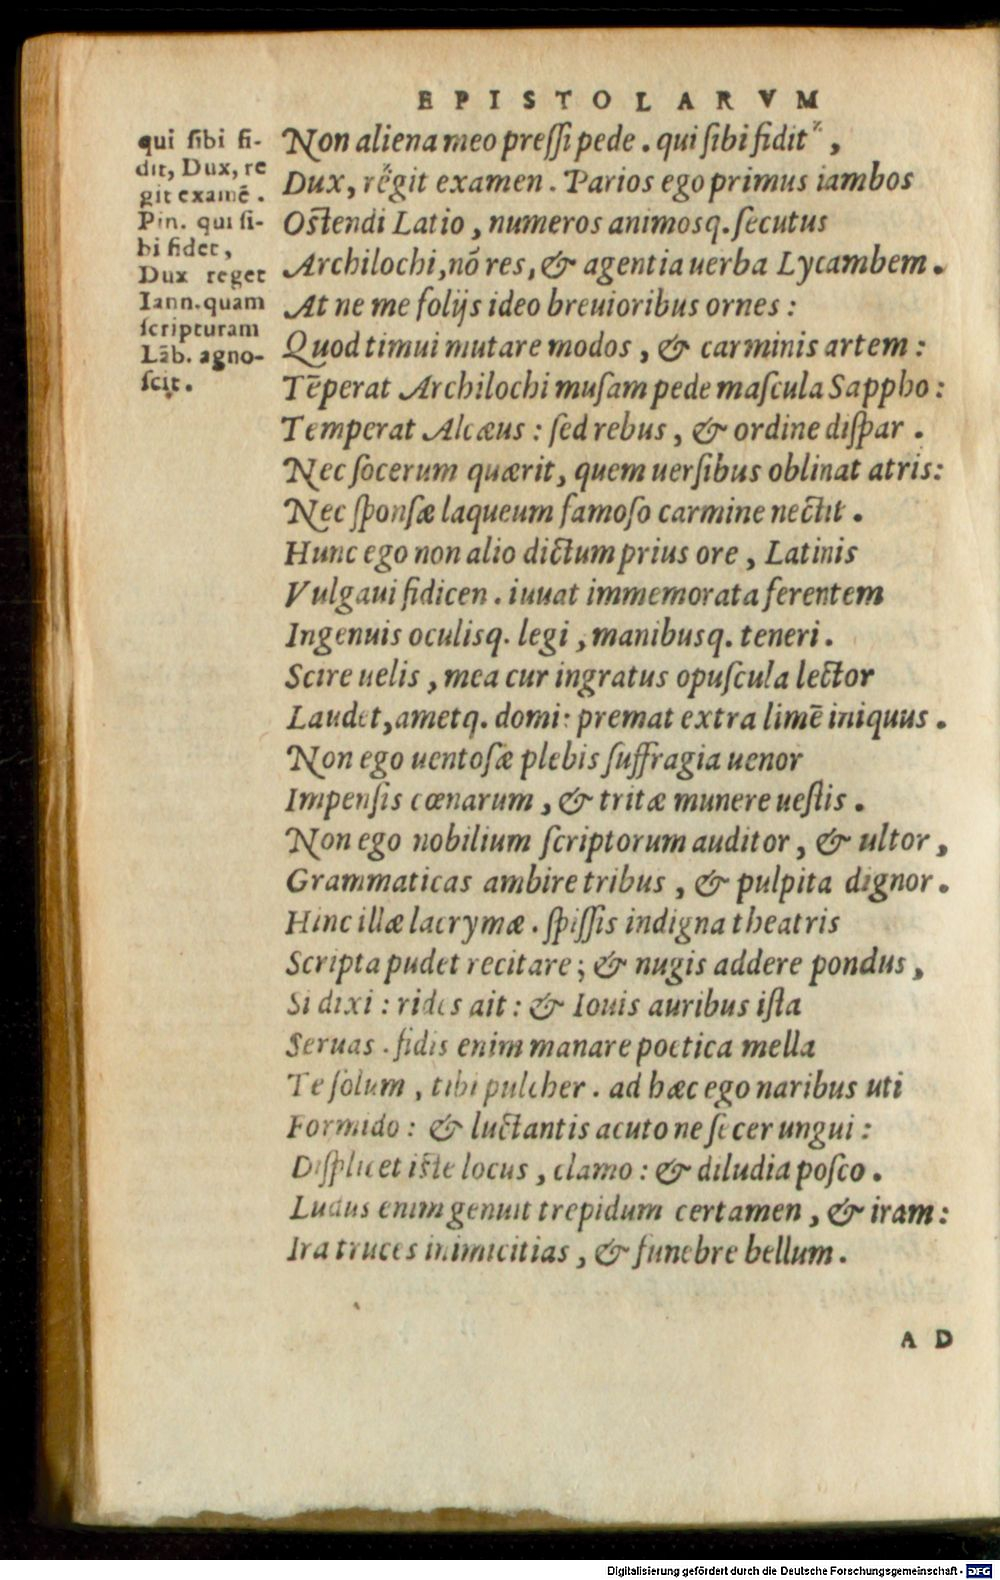 EPISTOLARVM
qui sibi fi-
dit, Dux, re
git examē.
Pin. qui si-
bi fidet,
Dux reget
Iann. quam
scripturam
Lāb. agno-
scit.
Non aliena meo pressi pede. qui sibi fidit,
Dux, régit examen. Parios ego primus iambos
Ostendi Latio, numeros animosq. secutus
Archilochi, nō res, & agentia uerba Lycambem.
At ne me folijs ideo breuioribus ornes:
Quod timui mutare modos, & carminis artem:
Tēperat Archilochi musam pede mascula Sappho:
Temperat Alcæus: sed rebus, & ordine dispar.
Nec socerum quærit, quem uersibus oblinat atris:
Nec sponsæ laqueum famoso carmine nectit.
Hunc ego non alio dictum prius ore, Latinis
Vulgaui fidicen. iuuat immemorata ferentem
Ingenuis oculisq. legi, manibusq. teneri.
Scire uelis, mea cur ingratus opuscula lector
Laudet, ametq. domi: premat extra limē iniquus.
Non ego uentosæ plebis suffragia uenor
Impensis cœnarum, & tritæ munere uestis.
Non ego nobilium scriptorum auditor, & ultor,
Grammaticas ambire tribus, & pulpita dignor.
Hinc illæ lacrymæ. spissis indigna theatris
Scripta pudet recitare; & nugis addere pondus,
Si dixi: rides ait: & Iouis auribus ista
Seruas. fidis enim manare poetica mella
Te solum, tibi pulcher. ad hæc ego naribus uti
Formido: & luctantis acuto ne secer ungui:
Displicet iste locus, clamo: & diludia posco.
Ludus enim genuit trepidum certamen, & iram:
Ira truces inimicitias, & funebre bellum.
AD
Digitalisierung gefördert durch die Deutsche Forschungsgemeinschaft - DFG